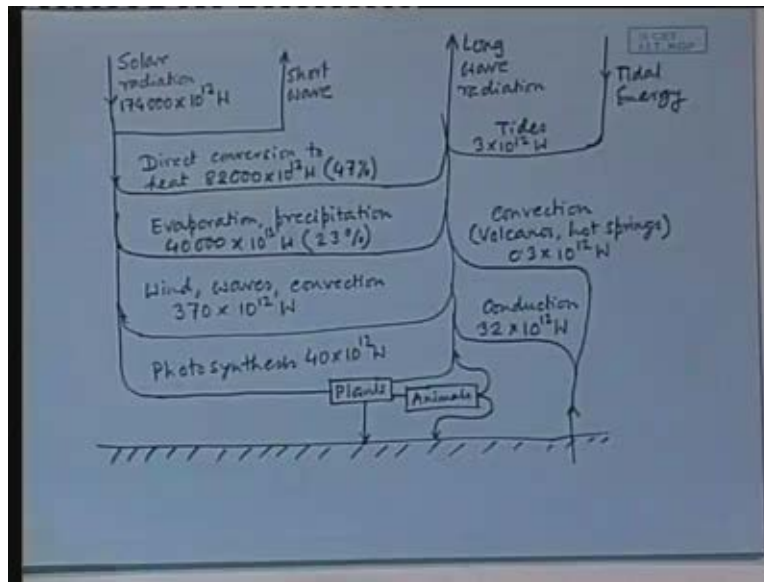 Solar
radiation
174000x10¹²W
Short
wave
Long
wave
radiation
Tidal
Energy
Tides
3x10¹²W
Direct conversion to
heat 82000x10¹²W (47%)
Evaporation, precipitation
40000 x 10¹²W (23%)
Wind, waves, convection
370 x 10¹² W
Photosynthesis 40x10¹²W
Convection
(Volcanos, hot springs)
0.3x10¹²W
Conduction
32x10¹²W
Plants
Animals